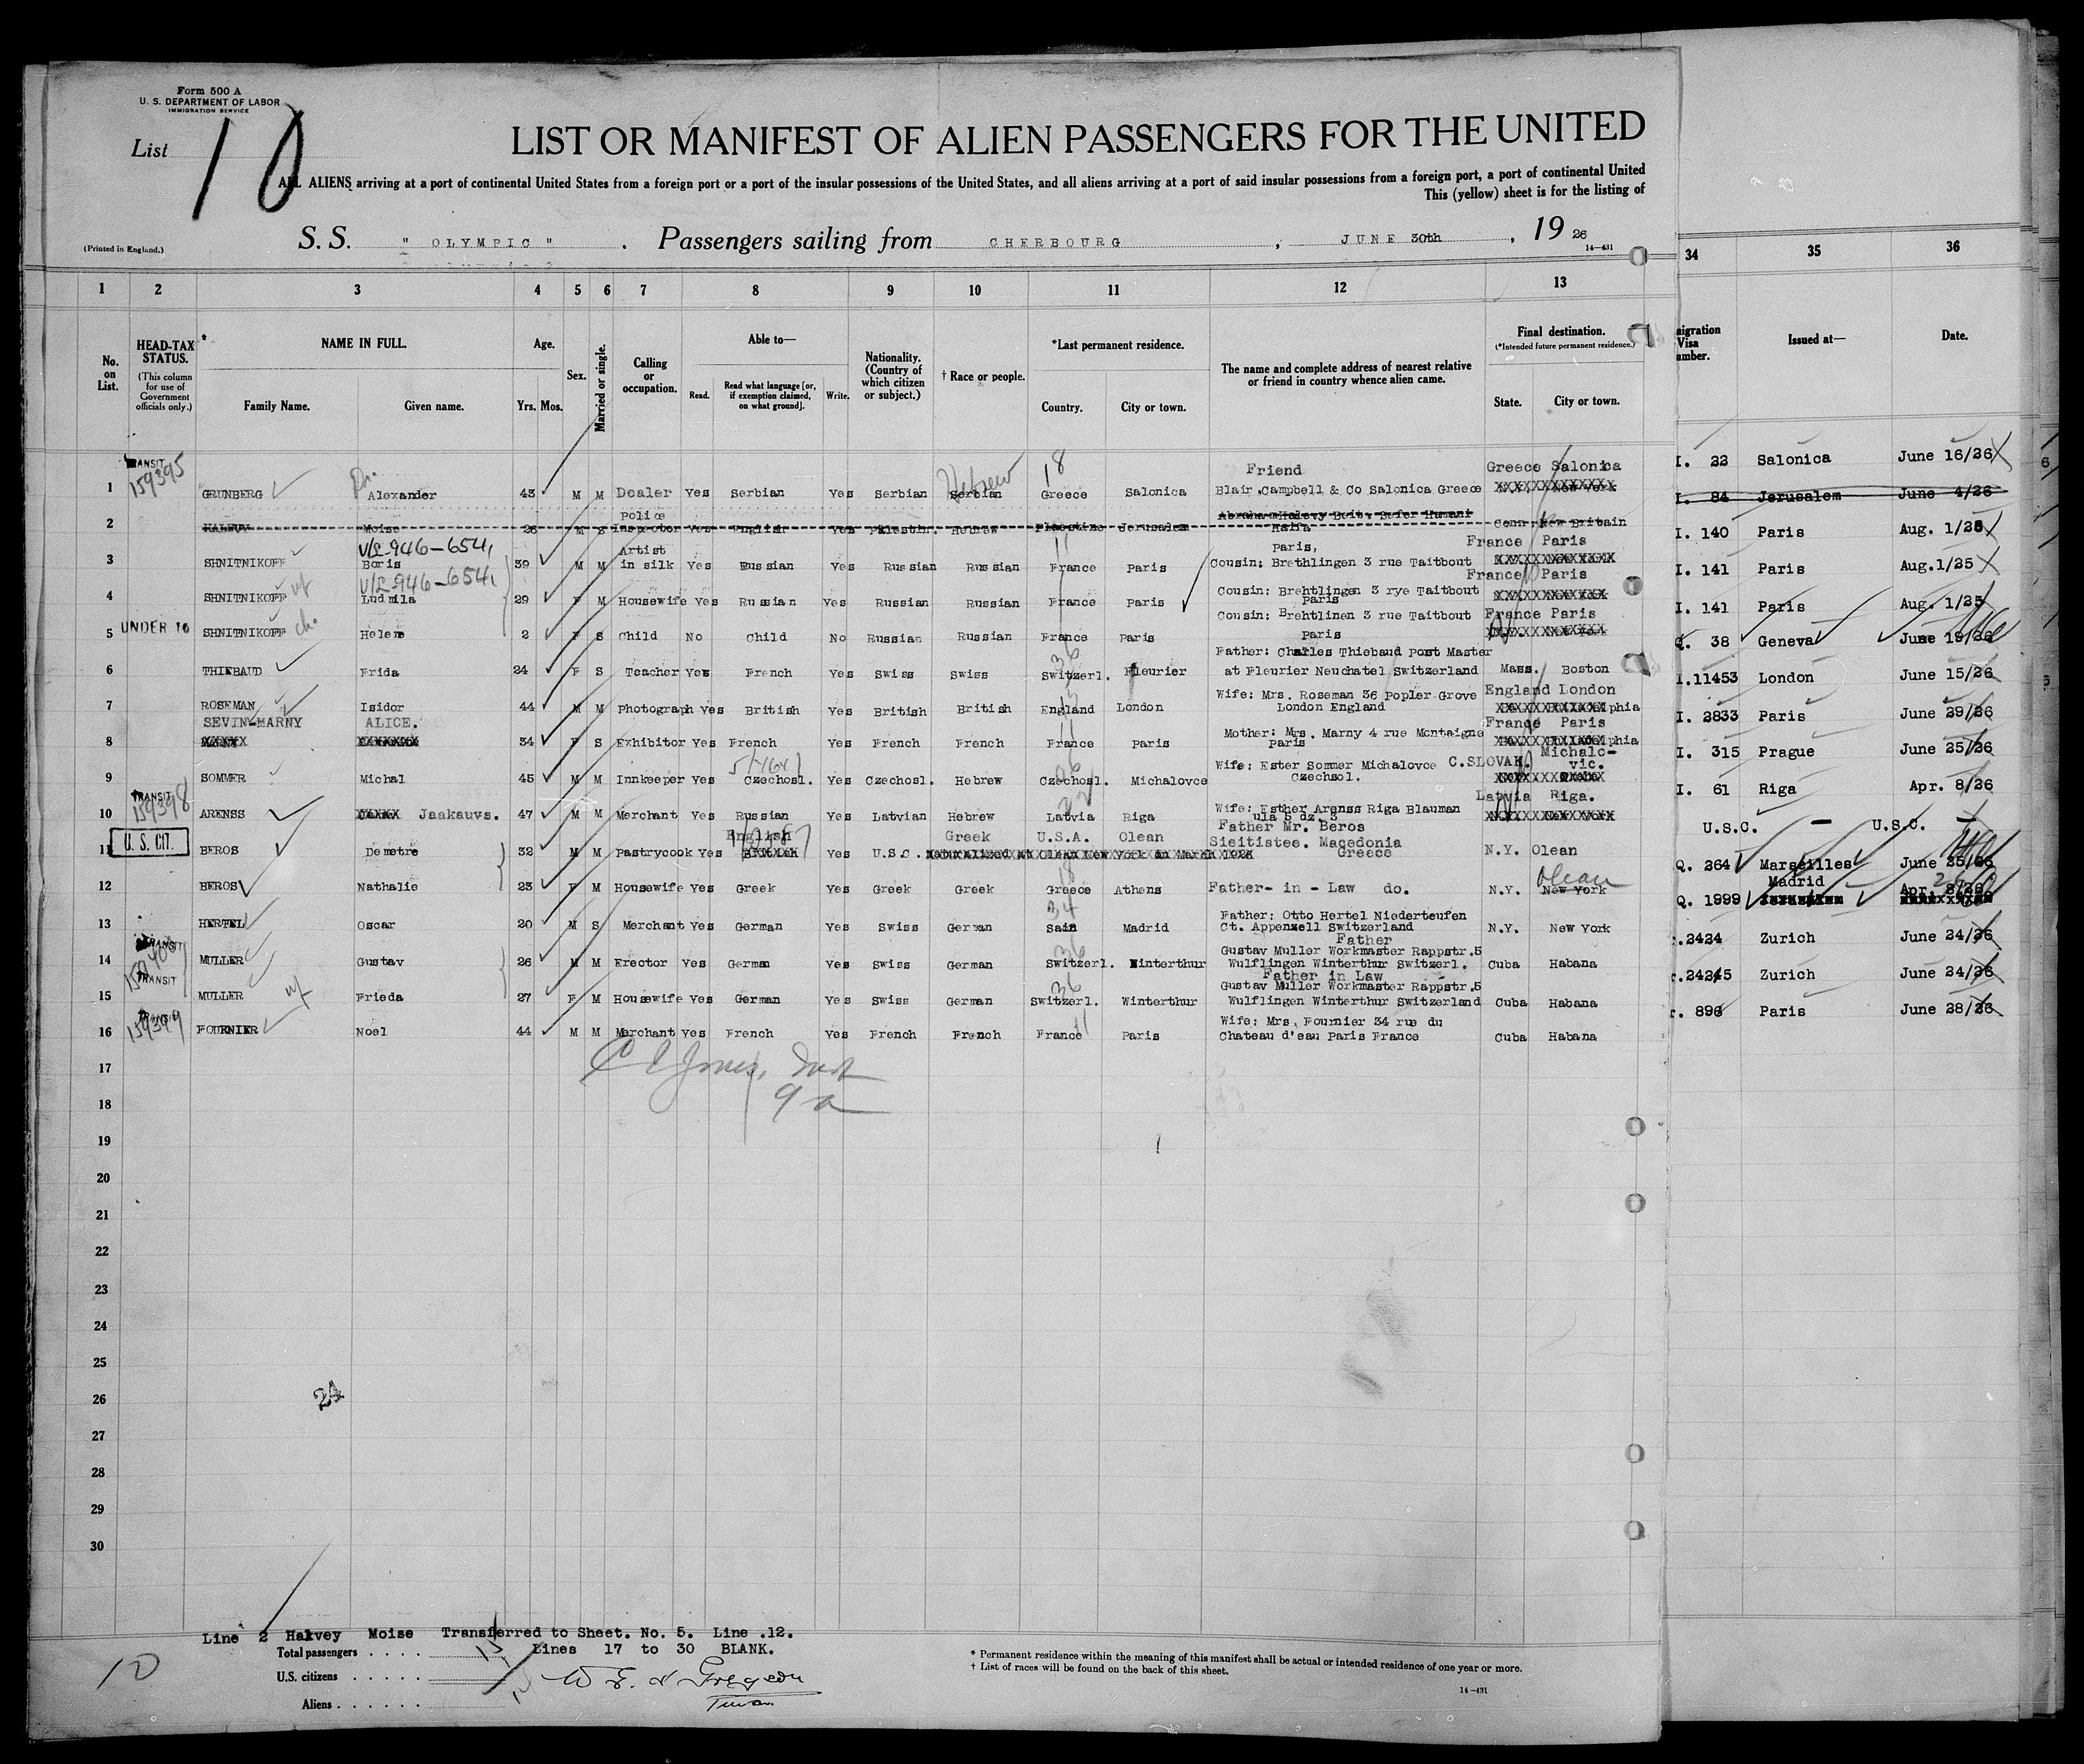 Form 500 A
U. S. DEPARTMENT OF LABOR
IMMIGRATION SERVICE
List 10
LIST OR MANIFEST OF ALIEN PASSENGERS FOR THE UNITED
ALL ALIENS arriving at a port of continental United States from a foreign port or a port of the insular possessions of the United States, and all aliens arriving at a port of said insular possessions from a foreign port, a port of continental United
This (yellow) sheet is for the listing of
(Printed in England.)
S. S. " OLYMPIC " . Passengers sailing from CHERBOURG , JUNE 30th , 19 26
14—431
1 2 3 4 5 6 7 8 9 10 11 12 13 34 35 36
No. on List.
HEAD-TAX STATUS.
(This column for use of Government officials only.)
* NAME IN FULL.
Family Name. Given name.
Age.
Yrs. Mos.
Sex.
Married or single.
Calling or occupation.
Able to—
Read. Read what language [or, if exemption claimed, on what ground]. Write.
Nationality. (Country of which citizen or subject.)
† Race or people.
*Last permanent residence.
Country. City or town.
The name and complete address of nearest relative or friend in country whence alien came.
Final destination.
(*Intended future permanent residence.)
State. City or town.
Issued at— Date.
159395 Dr. Hebrew 18 Friend Greece Salonica
1 GRUNBERG Alexander 43 M M Dealer Yes Serbian Yes Serbian Serbian Greece Salonica Blair Campbell & Co Salonica Greece New York I. 22 Salonica June 16/26
Police
2 Moise 26 M S Inspector Yes English Yes Hebrew Palestine Jerusalem Haifa Conn. New Britain I. 84 Jerusalem June 4/26
V/L-946-654, Artist Paris, France Paris
3 SHNITNIKOFF Boris 39 M M in silk Yes Russian Yes Russian Russian France Paris Cousin: Brethlingen 3 rue Taitbout I. 140 Paris Aug. 1/25
V/L-946-654, France Paris
4 SHNITNIKOFF wf Ludmila 29 F M Housewife Yes Russian Yes Russian Russian France Paris Cousin: Brehtlingen 3 rye Taitbout Paris I. 141 Paris Aug.1/25
UNDER 16 France Paris
5 SHNITNIKOFF ch. Helene 2 F S Child No Child No Russian Russian France Paris Cousin: Brehtlinen 3 rue Taitbout Paris I. 141 Paris Aug. 1/25
Father: Charles Thiebaud Post Master
6 THIEBAUD Frida 24 F S Teacher Yes French Yes Swiss Swiss Switzerl. Fleurier at Fleurier Neuchatel Switzerland Mass. Boston Q. 38 Geneva June 19/26
Wife: Mrs. Roseman 36 Popler Grove England London
7 ROSEMAN Isidor 44 M M Photograph Yes British Yes British British England London London England I.11453 London June 15/26
SEVIN-MARNY ALICE. France Paris
8 34 F S Exhibitor Yes French Yes French French France Paris Mother: Mrs. Marny 4 rue Montaigne Paris I. 2833 Paris June 29/26
Michalc-
9 SOMMER Michal 45 M M Innkeeper Yes Czechosl. Yes Czechosl. Hebrew Czechosl. Michalovce Wife: Ester Sommer Michalovce Czechsol. C.SLOVAK. vic. I. 315 Prague June 25/26
TRANSIT 159398 Latvia Riga.
10 ARENSS Jaakauvs. 47 M M Merchant Yes Russian Yes Latvian Hebrew Latvia Riga Wife: Esther Arenss Riga Blauman ula 5 dz. 3 New York I. 61 Riga Apr. 8/26
U. S. CIT. English Greek U.S.A. Olean Father Mr. Beros
11 BEROS Demetre 32 M M Pastrycook Yes Yes U.S.C. Naturalized at Olean New York in March 1926 Sieitistee. Macedonia Greece N.Y. Olean U.S.C. — U.S.C. —
12 BEROS Nathalie 23 F M Housewife Yes Greek Yes Greek Greek Greece Athens Father- in - Law do. N.Y. New York Olean Q. 264 Marseilles June 25/26
13 HERTEL Oscar 20 M S Merchant Yes German Yes Swiss German Sain Madrid Father: Otto Hertel Niederteufen Ct. Appenzell Switzerland N.Y. New York Q. 1999 Madrid
TRANSIT Father
14 MULLER Gustav 26 M M Erector Yes German Yes Swiss German Switzerl. Winterthur Gustav Muller Workmaster Rappstr.5 Wulflingen Winterthur Switzerl. Cuba Habana 2424 Zurich June 24/26
TRANSIT Father in Law
15 MULLER wf Frieda 27 F M Housewife Yes German Yes Swiss German Switzerl. Winterthur Gustav Muller Workmaster Rappstr.5 Wulflingen Winterthur Switzerland Cuba Habana Zurich June 24/26
159399
16 FOURNIER Noel 44 M M Merchant Yes French Yes French French France Paris Wife: Mrs. Fournier 34 rue du Chateau d'eau Paris France Cuba Habana 896 Paris June 28/26
17
18
19
20
21
22
23
24
25
26
27
28
29
30
24
Line 2 Halevy Moise Transferred to Sheet. No. 5. Line .12.
Lines 17 to 30 BLANK.
Total passengers . . . .
U.S. citizens . . . . .
Aliens . . . . . .
10
* Permanent residence within the meaning of this manifest shall be actual or intended residence of one year or more.
† List of races will be found on the back of this sheet.
14—431